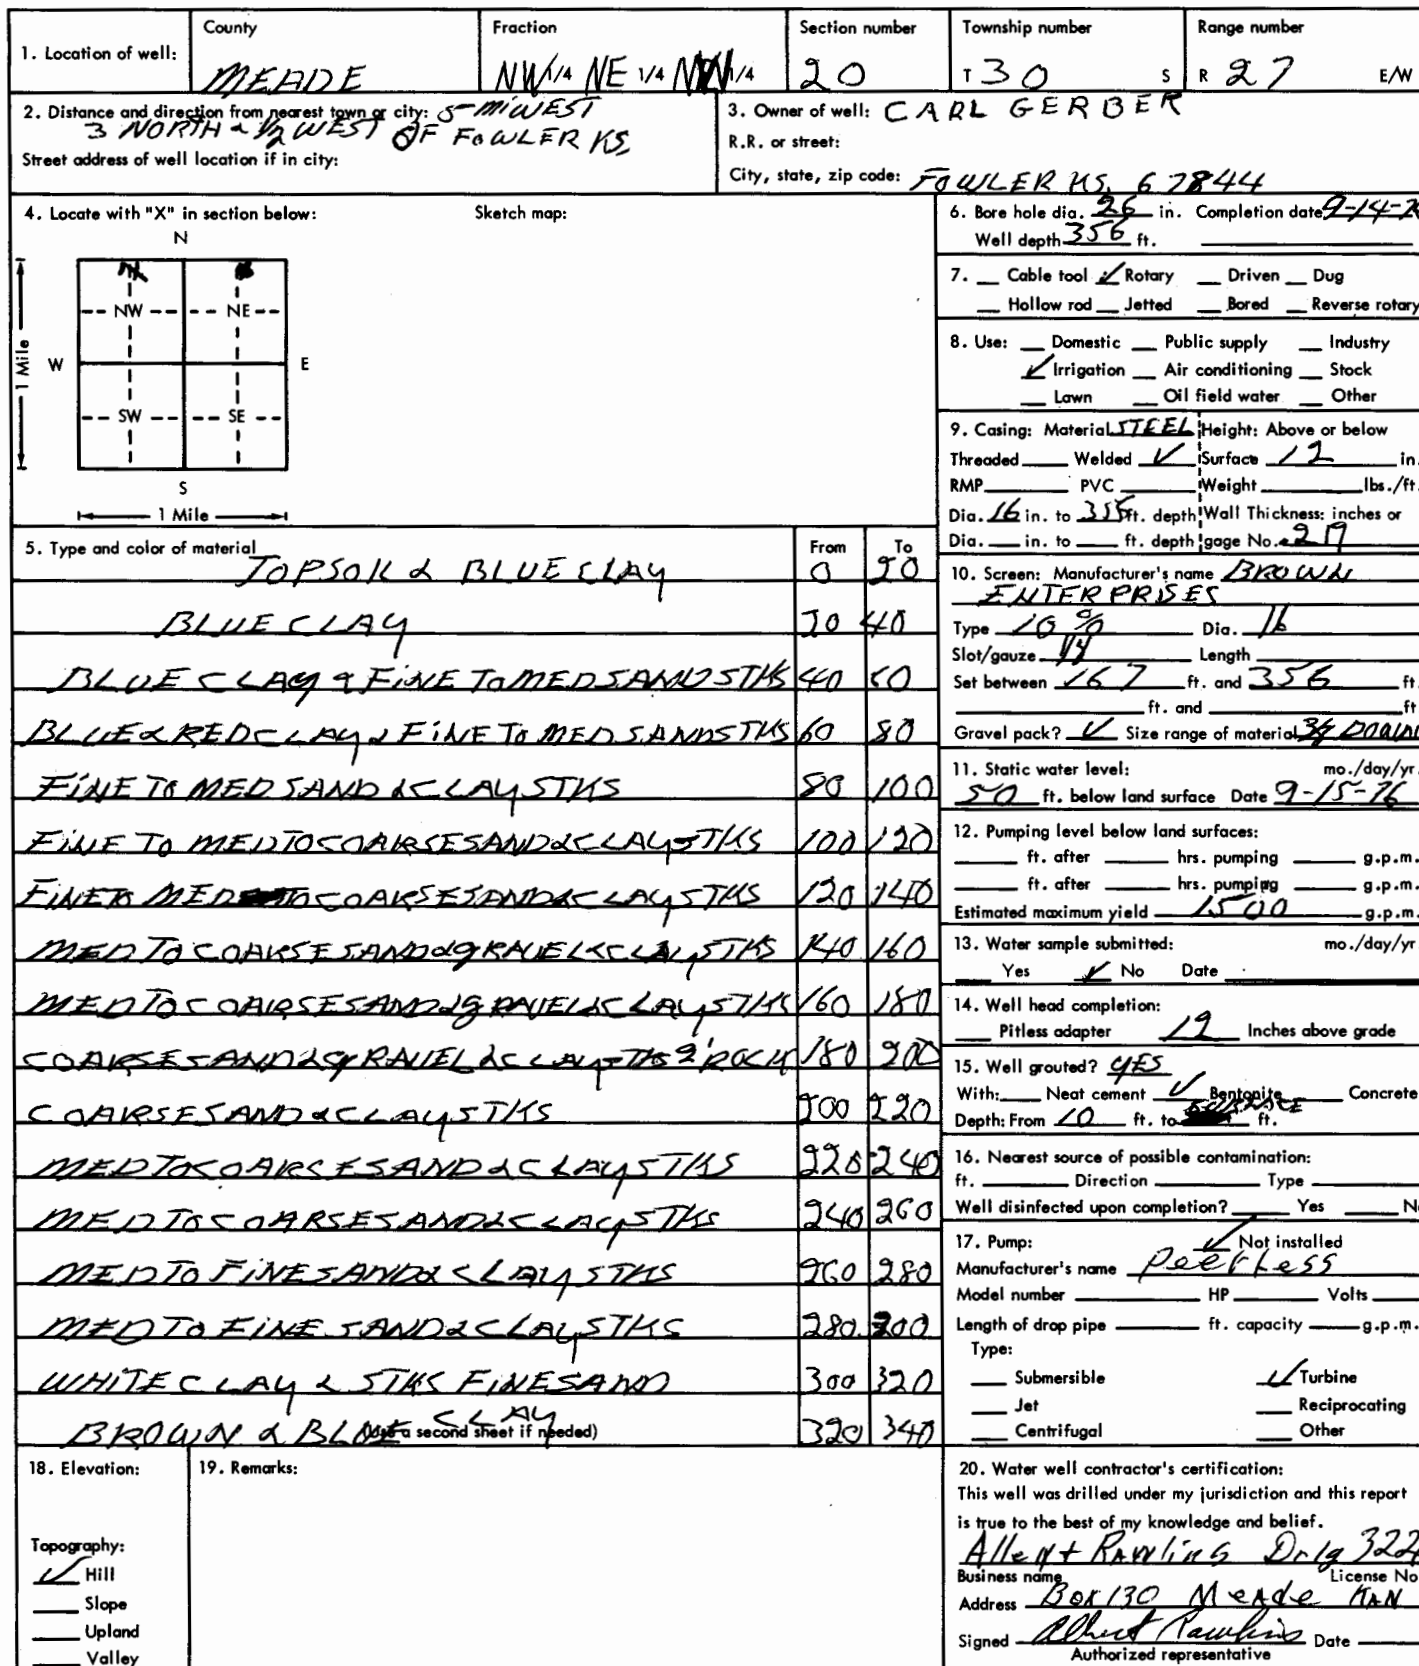 1. Location of well: County MEADE Fraction NW 1/4 NE 1/4 1/4 Section number 20 Township number T 30 S Range number R 27 E/W
2. Distance and direction from nearest town or city: 5 MI WEST
3 NORTH & 1/2 WEST OF FOWLER KS.
Street address of well location if in city:
3. Owner of well: CARL GERBER
R.R. or street:
City, state, zip code: FOWLER KS. 67844
4. Locate with "X" in section below: Sketch map:
N
NW NE
1 Mile W E
SW SE
S
1 Mile
5. Type and color of material From To
TOPSOIL & BLUE CLAY 0 20
BLUE CLAY 20 40
BLUE CLAY & FINE TO MED SAND STKS 40 60
BLUE & RED CLAY & FINE TO MED SAND STKS 60 80
FINE TO MED SAND & CLAY STKS 80 100
FINE TO MED TO COARSE SAND & CLAY STKS 100 120
FINE TO MED TO COARSE SAND & CLAY STKS 120 140
MED TO COARSE SAND & GRAVEL & CLAY STKS 140 160
MED TO COARSE SAND & GRAVEL & CLAY STKS 160 180
COARSE SAND & GRAVEL & CLAY STKS 2' ROCK 180 200
COARSE SAND & CLAY STKS 200 220
MED TO COARSE SAND & CLAY STKS 220 240
MED TO COARSE SAND & CLAY STKS 240 260
MED TO FINE SAND & CLAY STKS 260 280
MED TO FINE SAND & CLAY STKS 280 300
WHITE CLAY & STKS FINE SAND 300 320
BROWN & BLUE CLAY 320 340
(Use a second sheet if needed)
6. Bore hole dia. 26 in. Completion date 9-14-76
Well depth 356 ft.
7. Cable tool ✓ Rotary Driven Dug
Hollow rod Jetted Bored Reverse rotary
8. Use: Domestic Public supply Industry
✓ Irrigation Air conditioning Stock
Lawn Oil field water Other
9. Casing: Material STEEL Height: Above or below
Threaded Welded ✓ Surface 12 in.
RMP PVC Weight lbs./ft.
Dia. 16 in. to 356 ft. depth Wall Thickness: inches or
Dia. in. to ft. depth gage No. .219
10. Screen: Manufacturer's name BROWN
ENTERPRISES
Type 10 % Dia. 16
Slot/gauze Length
Set between 167 ft. and 356 ft.
ft. and ft.
Gravel pack? ✓ Size range of material 3/8 DOWN
11. Static water level: mo./day/yr.
50 ft. below land surface Date 9-15-76
12. Pumping level below land surfaces:
ft. after hrs. pumping g.p.m.
ft. after hrs. pumping g.p.m.
Estimated maximum yield 1500 g.p.m.
13. Water sample submitted: mo./day/yr.
Yes ✓ No Date
14. Well head completion:
Pitless adapter 12 Inches above grade
15. Well grouted? YES
With: Neat cement ✓ Bentonite Concrete
Depth: From 10 ft. to SURFACE ft.
16. Nearest source of possible contamination:
ft. Direction Type
Well disinfected upon completion? Yes No
17. Pump: ✓ Not installed
Manufacturer's name Peerless
Model number HP Volts
Length of drop pipe ft. capacity g.p.m.
Type:
Submersible ✓ Turbine
Jet Reciprocating
Centrifugal Other
18. Elevation:
Topography:
✓ Hill
Slope
Upland
Valley
19. Remarks:
20. Water well contractor's certification:
This well was drilled under my jurisdiction and this report
is true to the best of my knowledge and belief.
Rawlins Drlg 322
Business name License No
Address Box 130 Meade KAN
Signed Albert Rawlins Date
Authorized representative